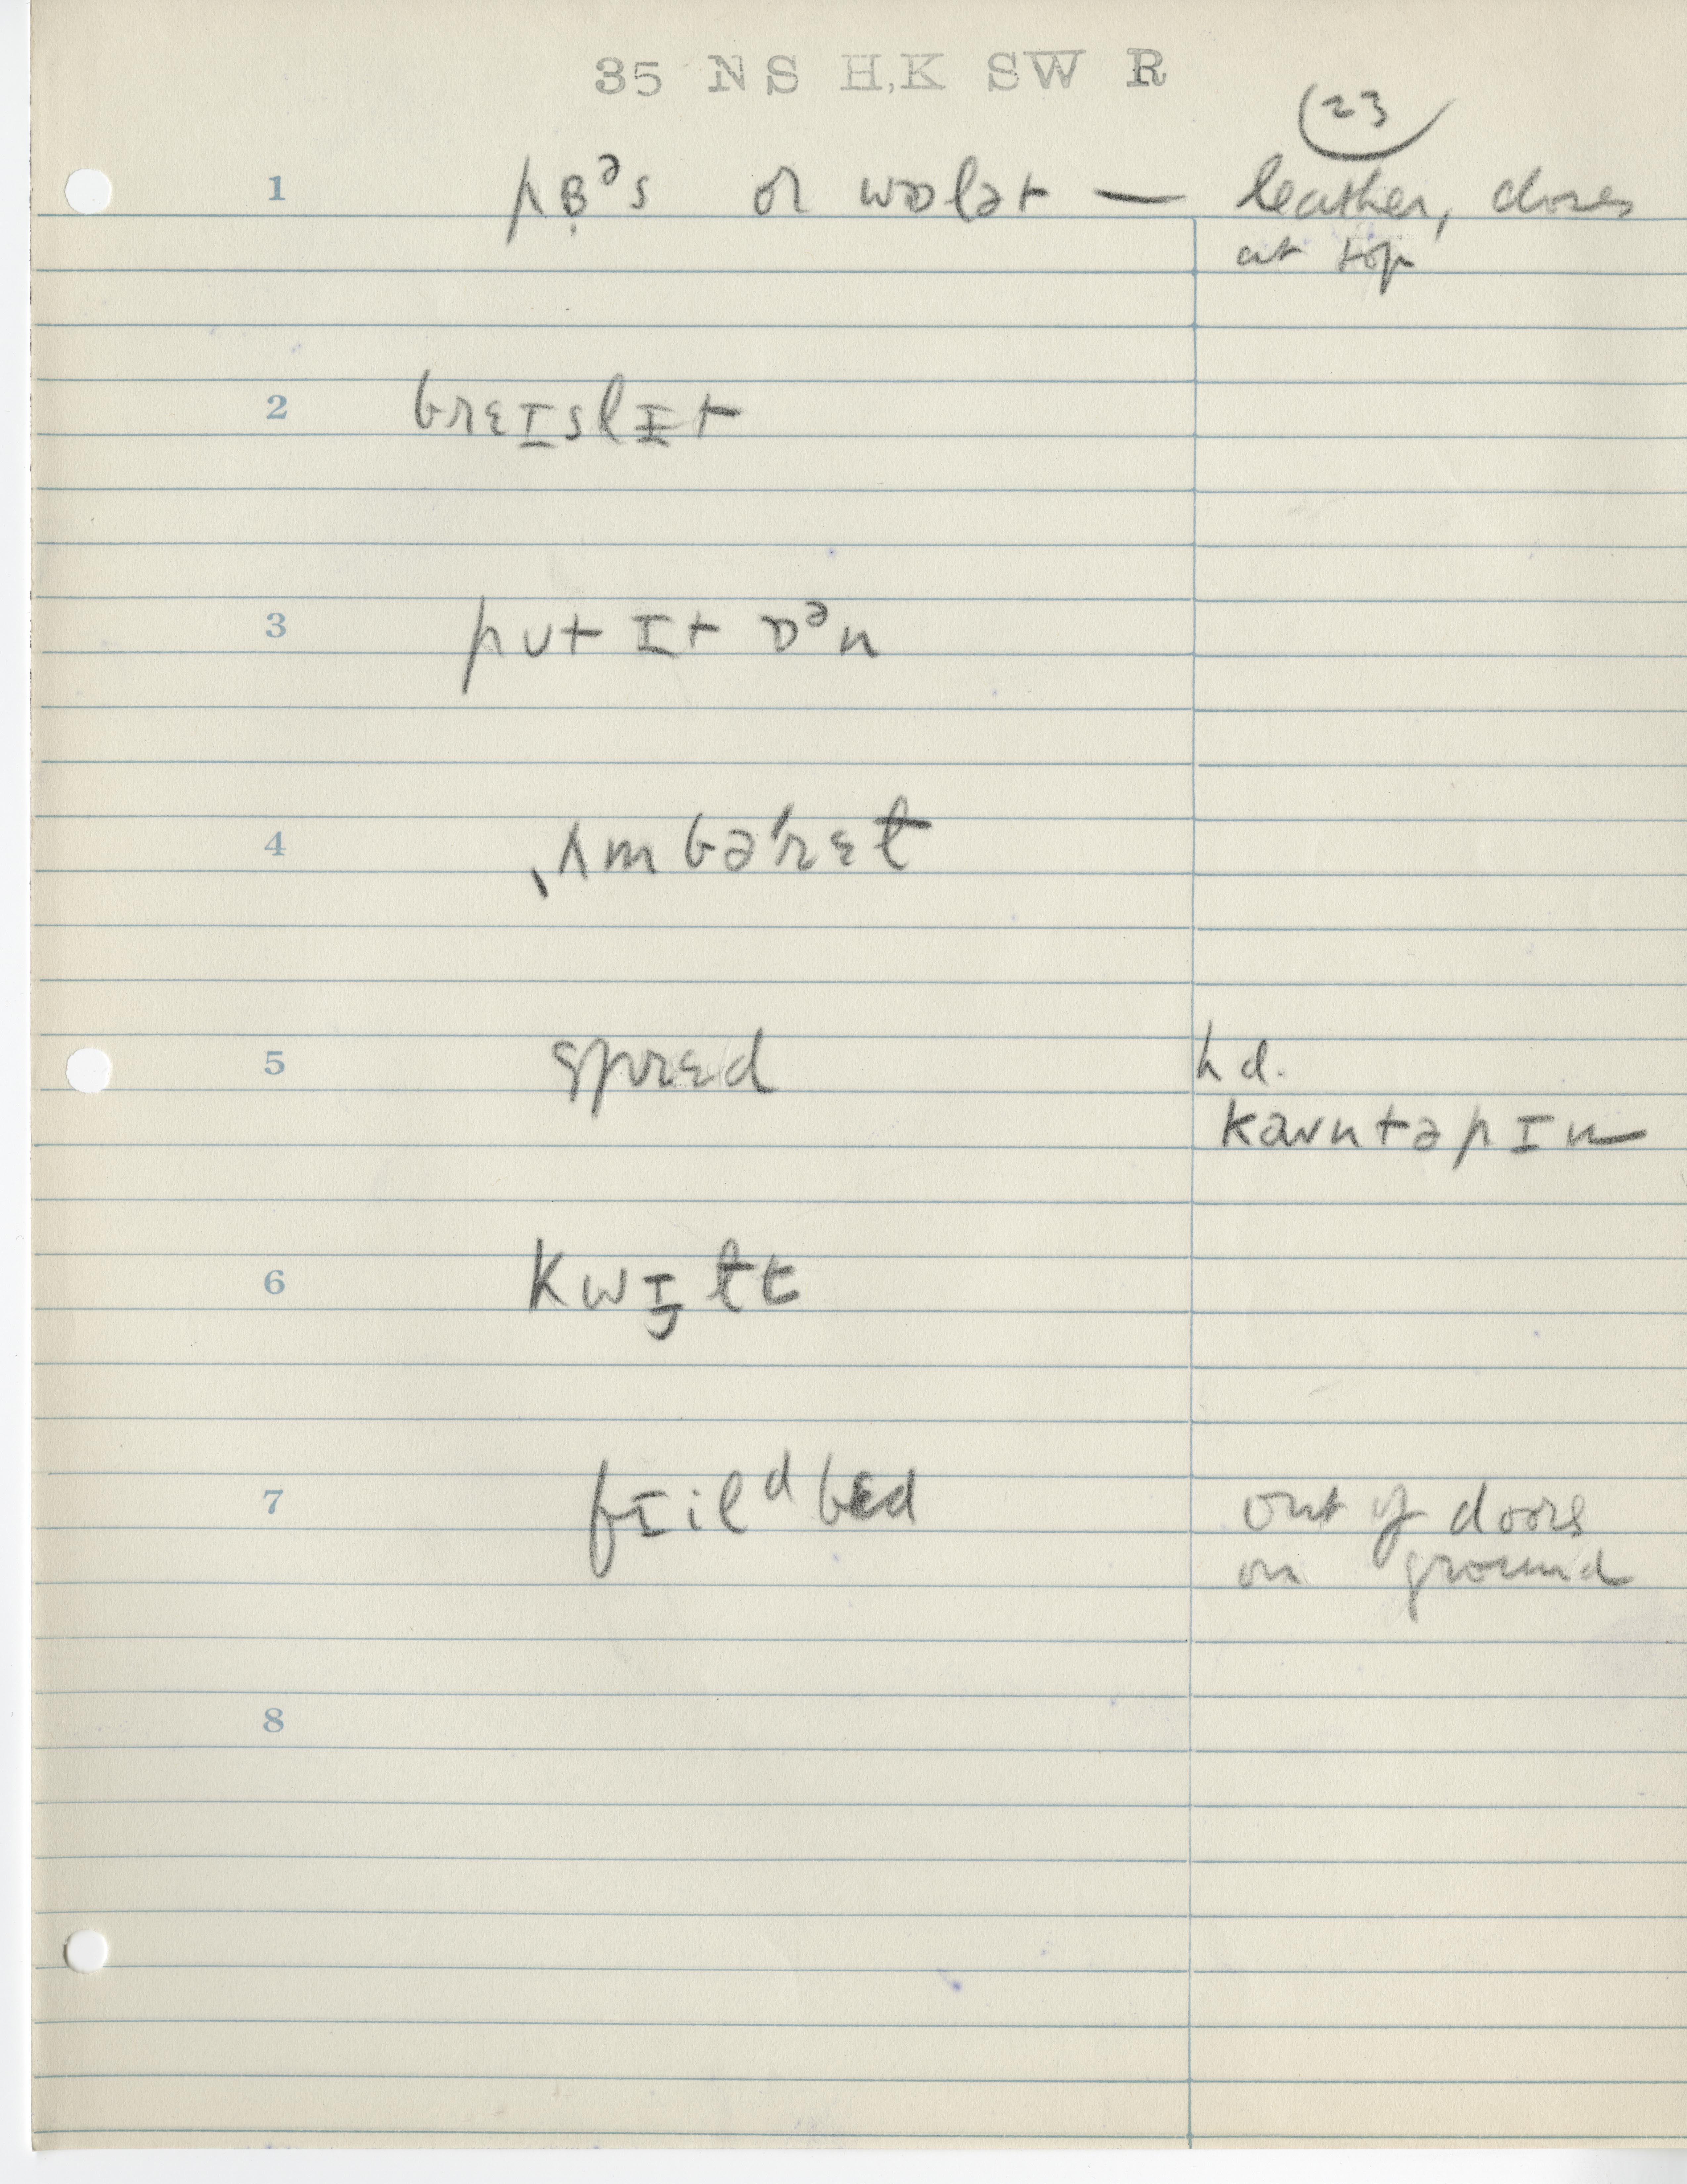 35 NS H,K SW R
(23
1 pɞ̣ᵊs or wɒlət — leather, closes
at top
2 breɪslɨt
3 pʊt ɪt ɒᵊn
4 ˌʌmbəˈrɛɫ
5 sprɛd h d.
kaʊntəpɪn
6 kwɪ̯ɫt
7 fɪilᵈbɛd out of doors
on ground
8